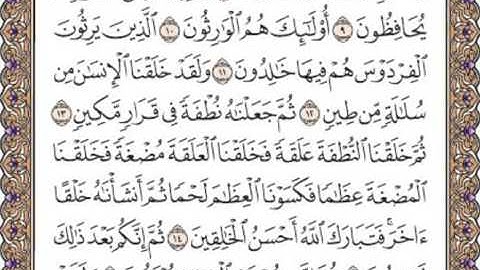 يُحَافِظُونَ ٩ أُو۟لَـٰٓئِكَ هُمُ ٱلْوَٰرِثُونَ ١٠ ٱلَّذِينَ يَرِثُونَ
ٱلْفِرْدَوْسَ هُمْ فِيهَا خَـٰلِدُونَ ١١ وَلَقَدْ خَلَقْنَا ٱلْإِنسَـٰنَ مِن
سُلَـٰلَةٍ مِّن طِينٍ ١٢ ثُمَّ جَعَلْنَـٰهُ نُطْفَةً فِى قَرَارٍ مَّكِينٍ ١٣
ثُمَّ خَلَقْنَا ٱلنُّطْفَةَ عَلَقَةً فَخَلَقْنَا ٱلْعَلَقَةَ مُضْغَةً فَخَلَقْنَا
ٱلْمُضْغَةَ عِظَـٰمًا فَكَسَوْنَا ٱلْعِظَـٰمَ لَحْمًا ثُمَّ أَنشَأْنَـٰهُ خَلْقًا
ءَاخَرَ ۚ فَتَبَارَكَ ٱللَّهُ أَحْسَنُ ٱلْخَـٰلِقِينَ ١٤ ثُمَّ إِنَّكُم بَعْدَ ذَٰلِكَ